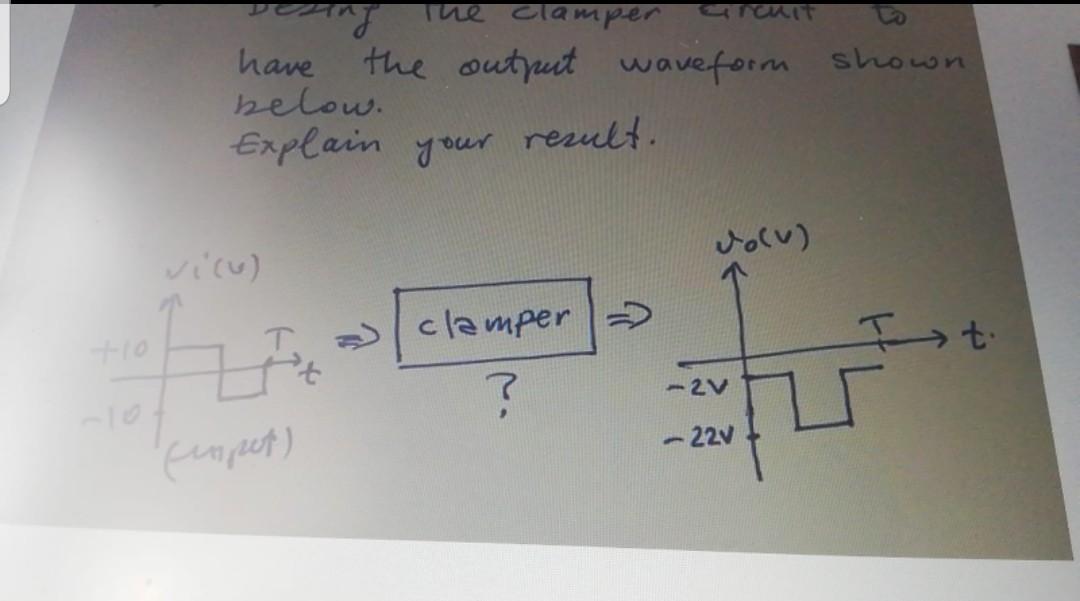 Desing the clamper circuit to
have the output waveform shown
below.
Explain your result.
vi(v)
+10
T
t
-10
(input)
⇒ clamper ⇒
?
vo(v)
T
t.
-2V
-22V